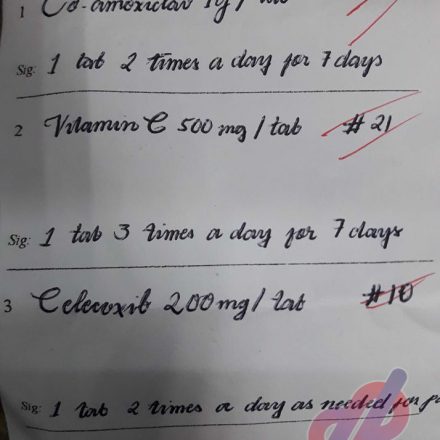 1 Co-amoxiclav 1g / tab
Sig: 1 tab 2 times a day for 7 days
2 Vitamin C 500 mg / tab #21
Sig: 1 tab 3 times a day for 7 days
3 Celecoxib 200 mg / tab #10
Sig: 1 tab 2 times a day as needed for